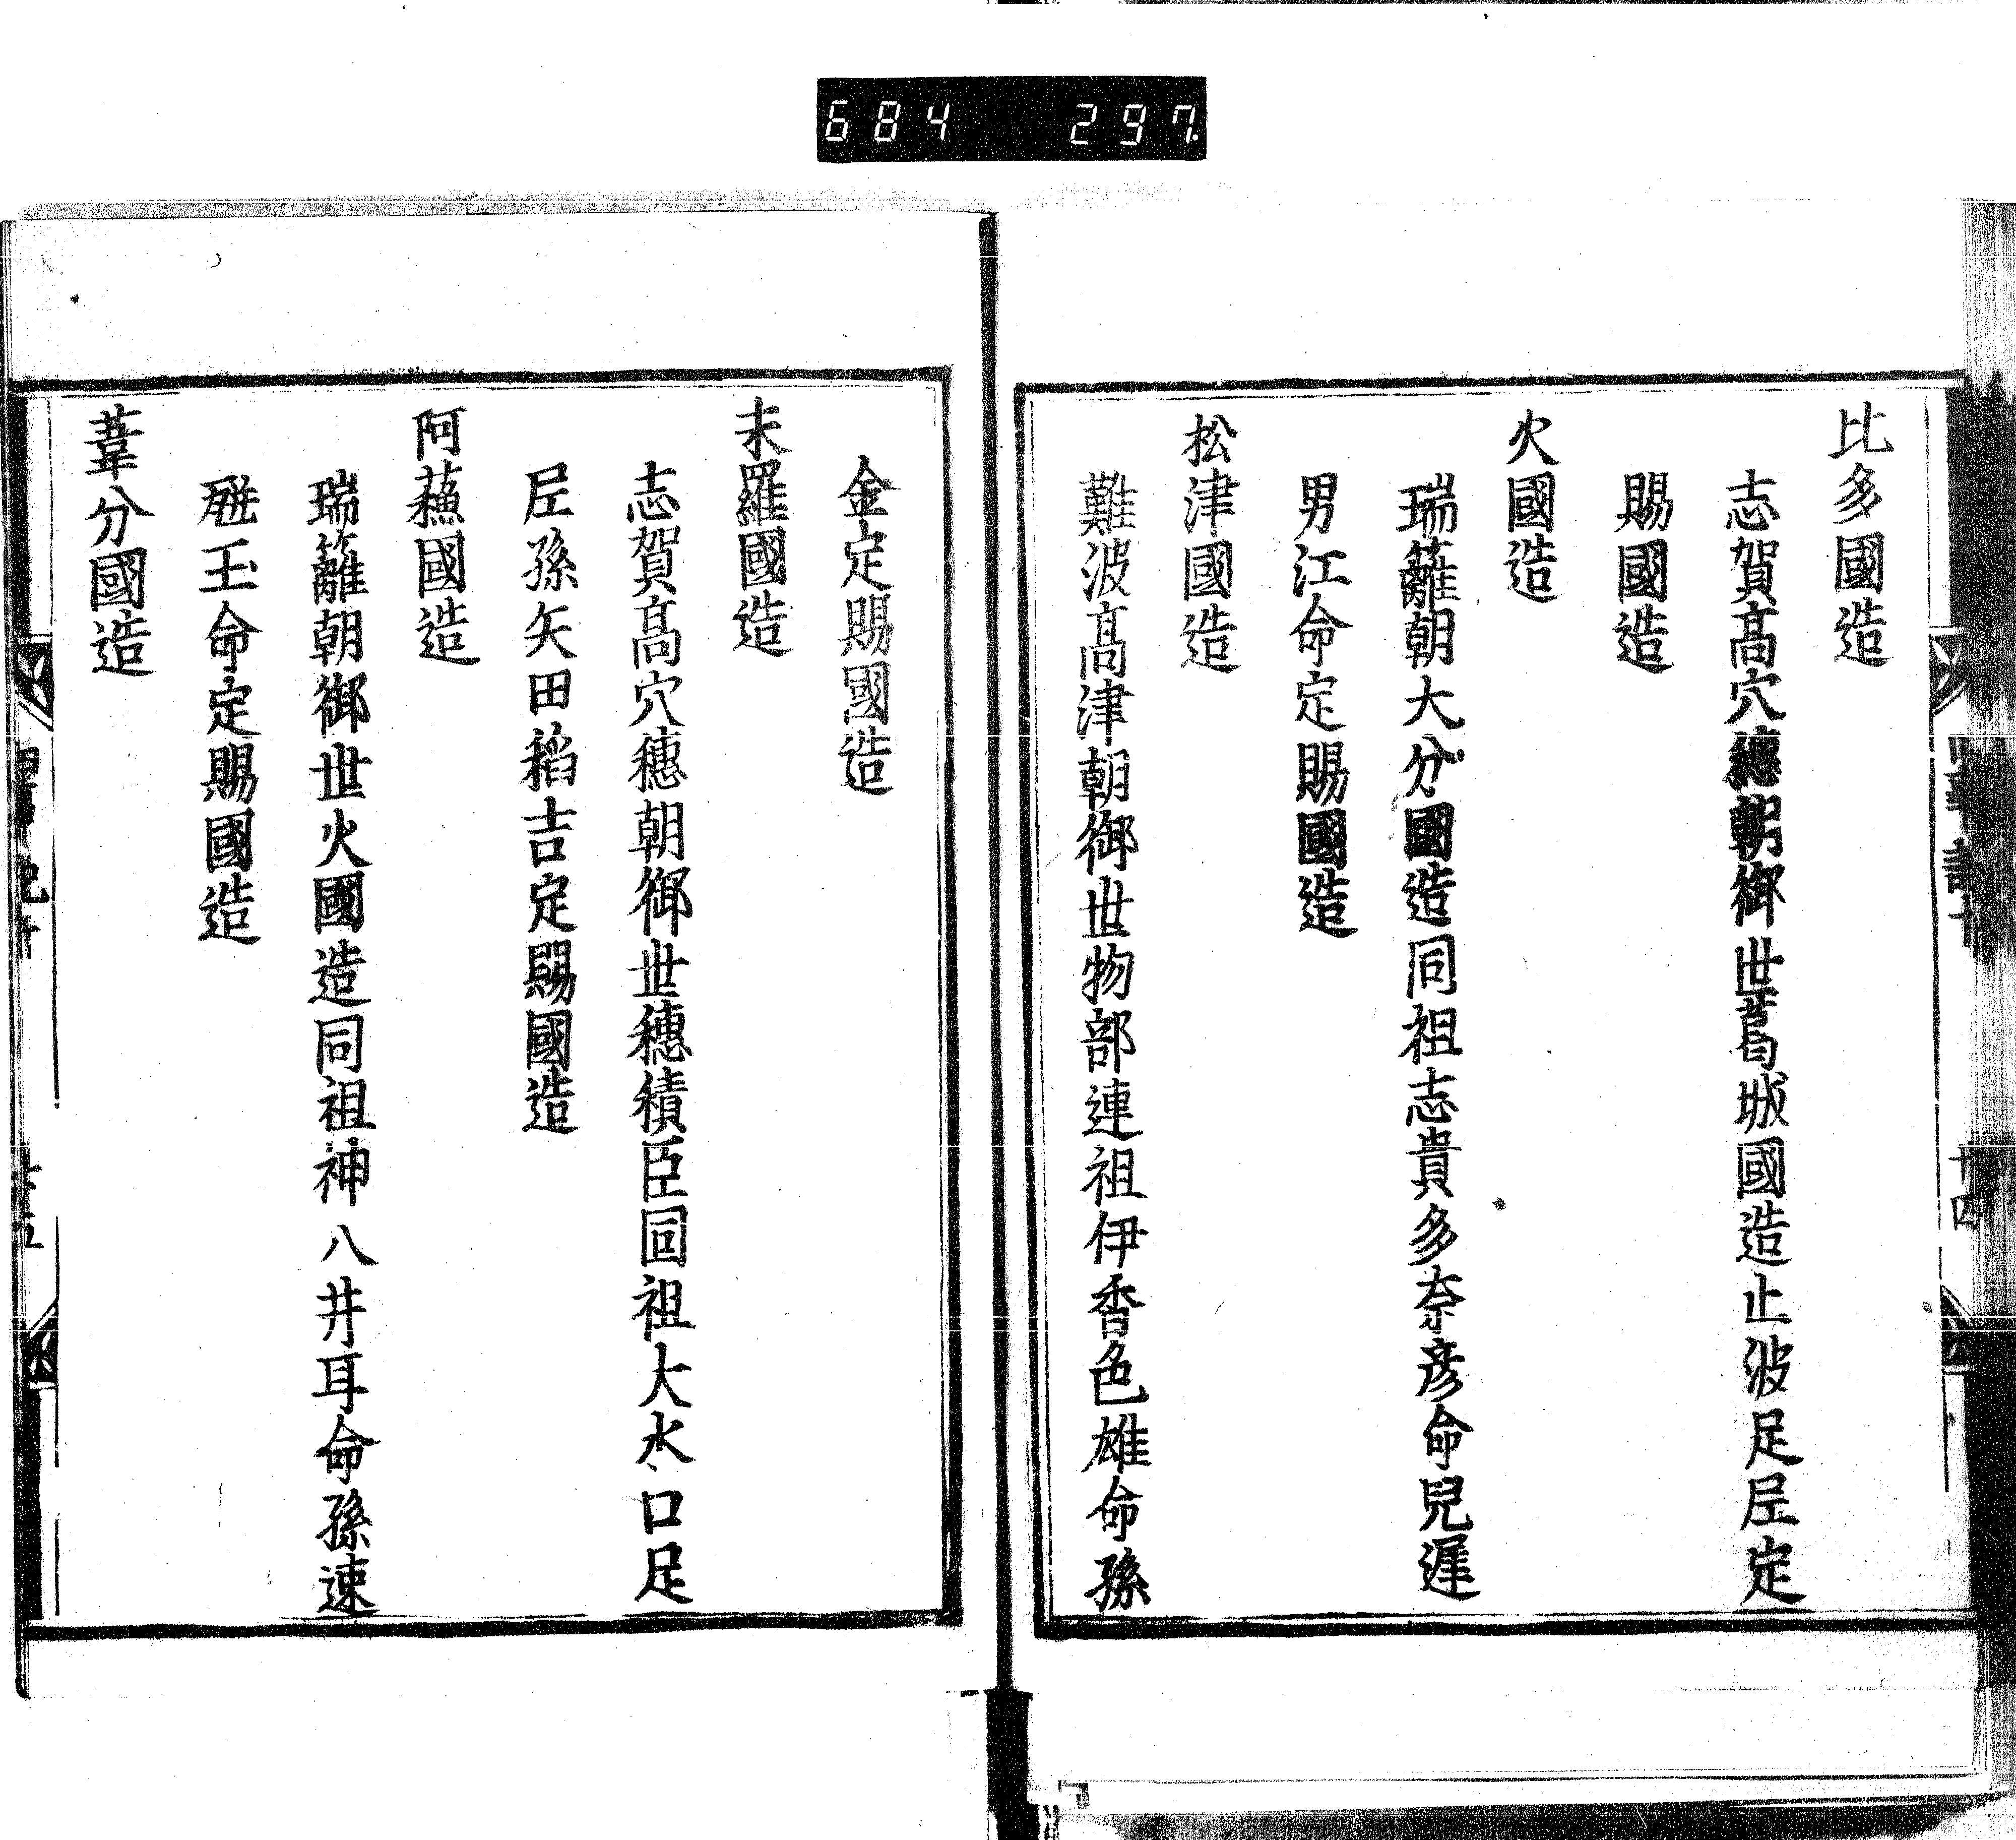 684 297
比多國造
志賀髙穴穗朝御世葛城國造止波足尼定
賜國造
火國造
瑞籬朝大分國造同祖志貴多奈彦命兒遲
男江命定賜國造
松津國造
難波髙津朝御世物部連祖伊香色雄命孫
金定賜國造
末羅國造
志賀髙穴穗朝御世穗積臣同祖大水口足
尼孫矢田稻吉定賜國造
阿蘓國造
瑞籬朝御世火國造同祖神八井耳命孫速
瓶玉命定賜國造
葦分國造